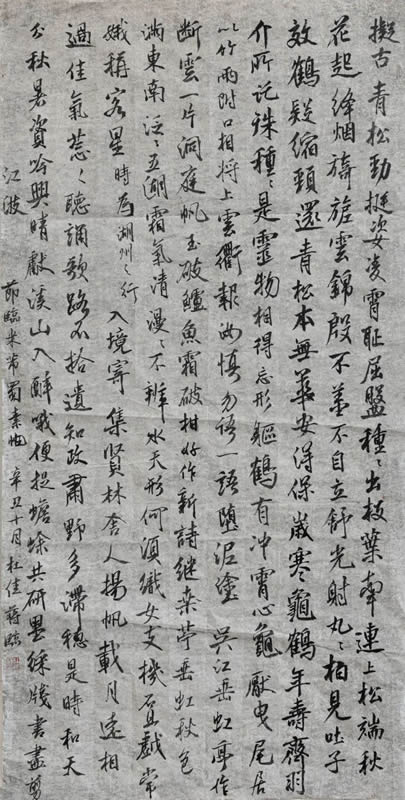 擬古 青松勁挺姿凌霄耻屈盤種〻出枝葉牽連上松端秋
花起絳烟旖旎雲錦殷不羞不自立舒光射丸〻柏見吐子
效鶴髮縮頸還青松本無華安得保歲寒龜鶴年壽齊羽
介所託殊種〻是靈物相得忘形軀鶴有冲霄心龜厭曳尾居
以竹兩附口相將上雲衢報汝慎勿語一語墮泥塗 吳江垂虹亭作
断雲一片洞庭帆玉破鱸魚霜破柑好作新詩繼桑苧垂虹秋色
滿東南泛〻五湖霜氣清漫〻不辨水天形何須織女支機石且戲常
娥稱客星 時爲湖州之行 入境寄集賢林舍人揚帆載月遠相
過佳氣葱〻聽誦歌路不拾遺知政肅野多滯穗是時和天
分秋暑資吟興晴獻溪山入醉哦便捉蟾蜍共研墨綵牋書盡剪
江波
節臨米芾蜀素帖 辛丑十月杜佳蒋臨